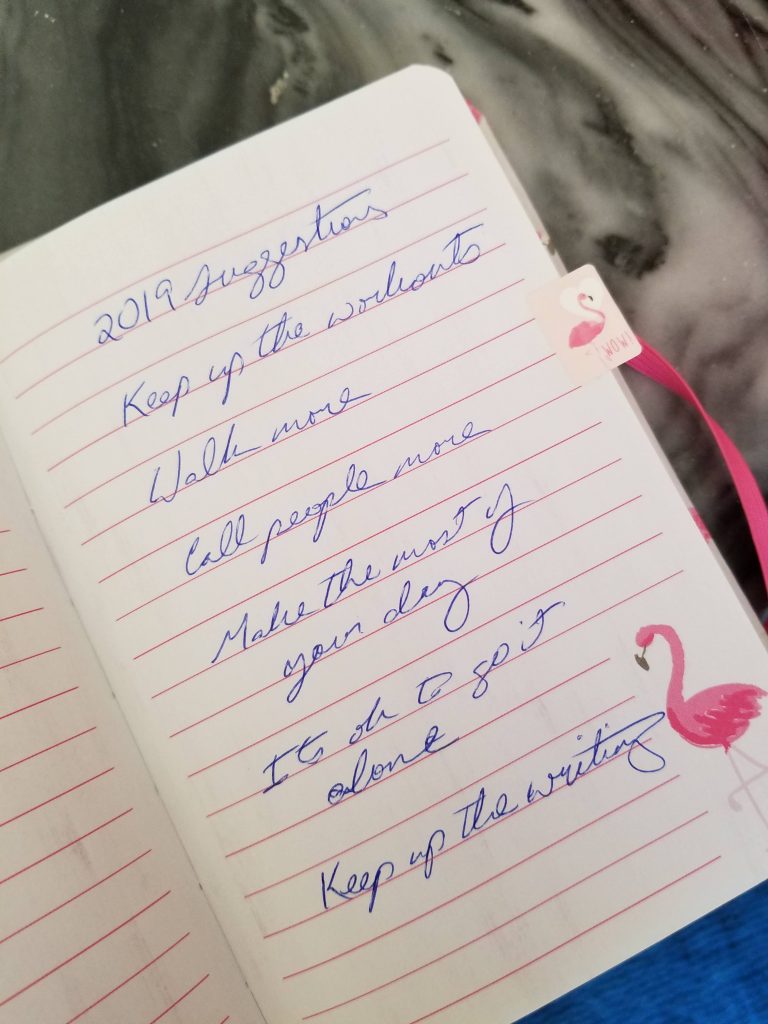 2019 Suggestions
Keep up the workouts
Walk more
Call people more
Make the most of
your day
Its ok to go it
alone
Keep up the writing
WOW!